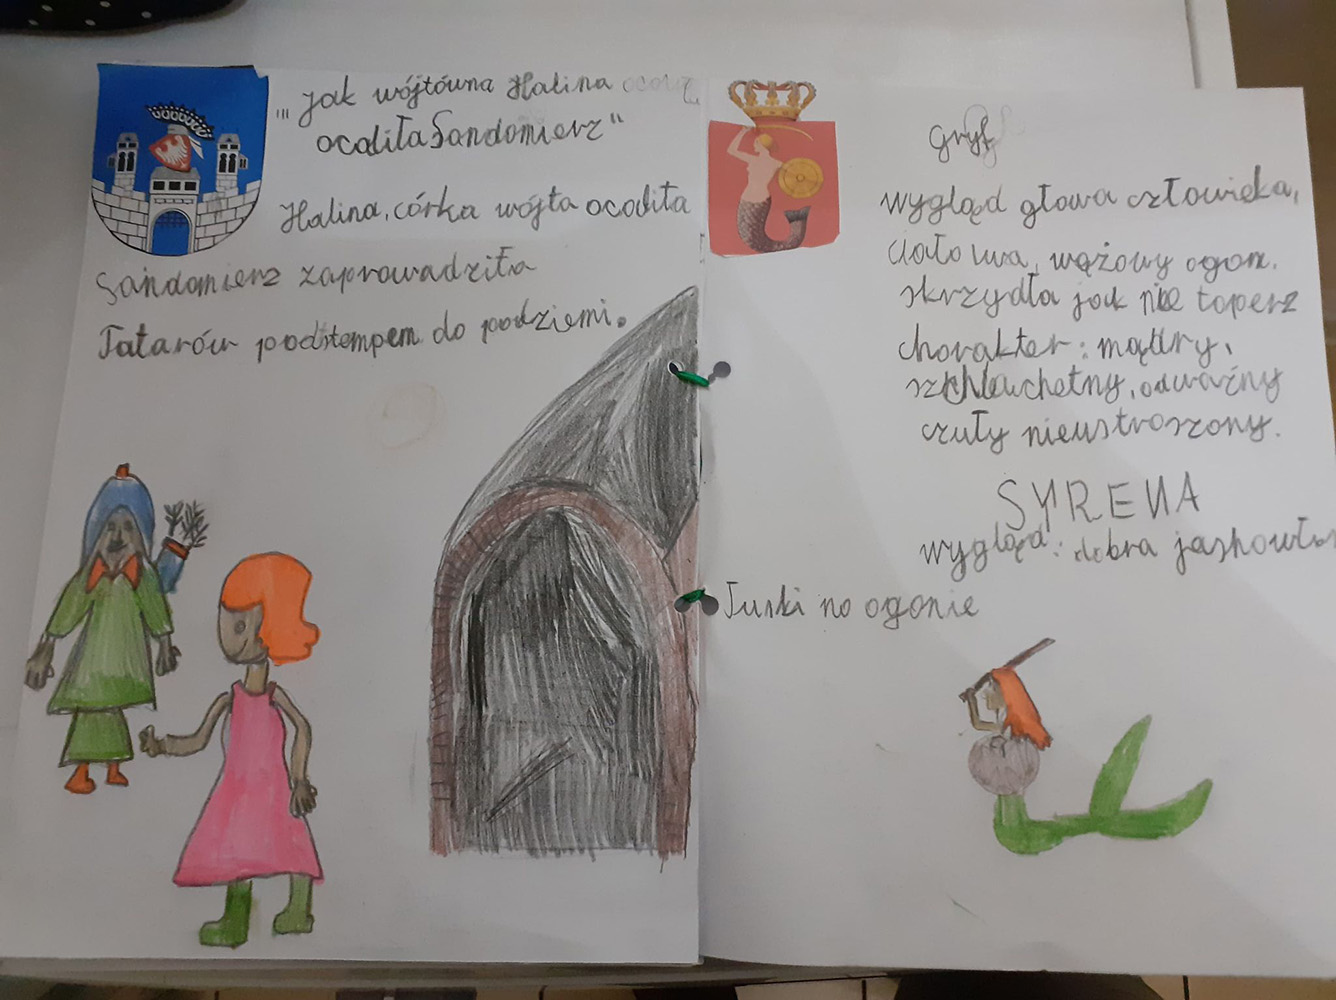 "" Jak wójtówna Halina
ocaliła Sandomierz"
Halina, córka wójta ocaliła
Sandomierz zaprowadziła
Tatarów podstempem do podziemi.
Gryf
wygląd głowa człowieka,
ciało lwa, wężowy ogon.
skrzydła jak nie toperz
charakter: mądry,
szlachetny, odważny
czuły nieustraszony.
SYRENA
wygląd: dobra jasnowłosa
łuski na ogonie